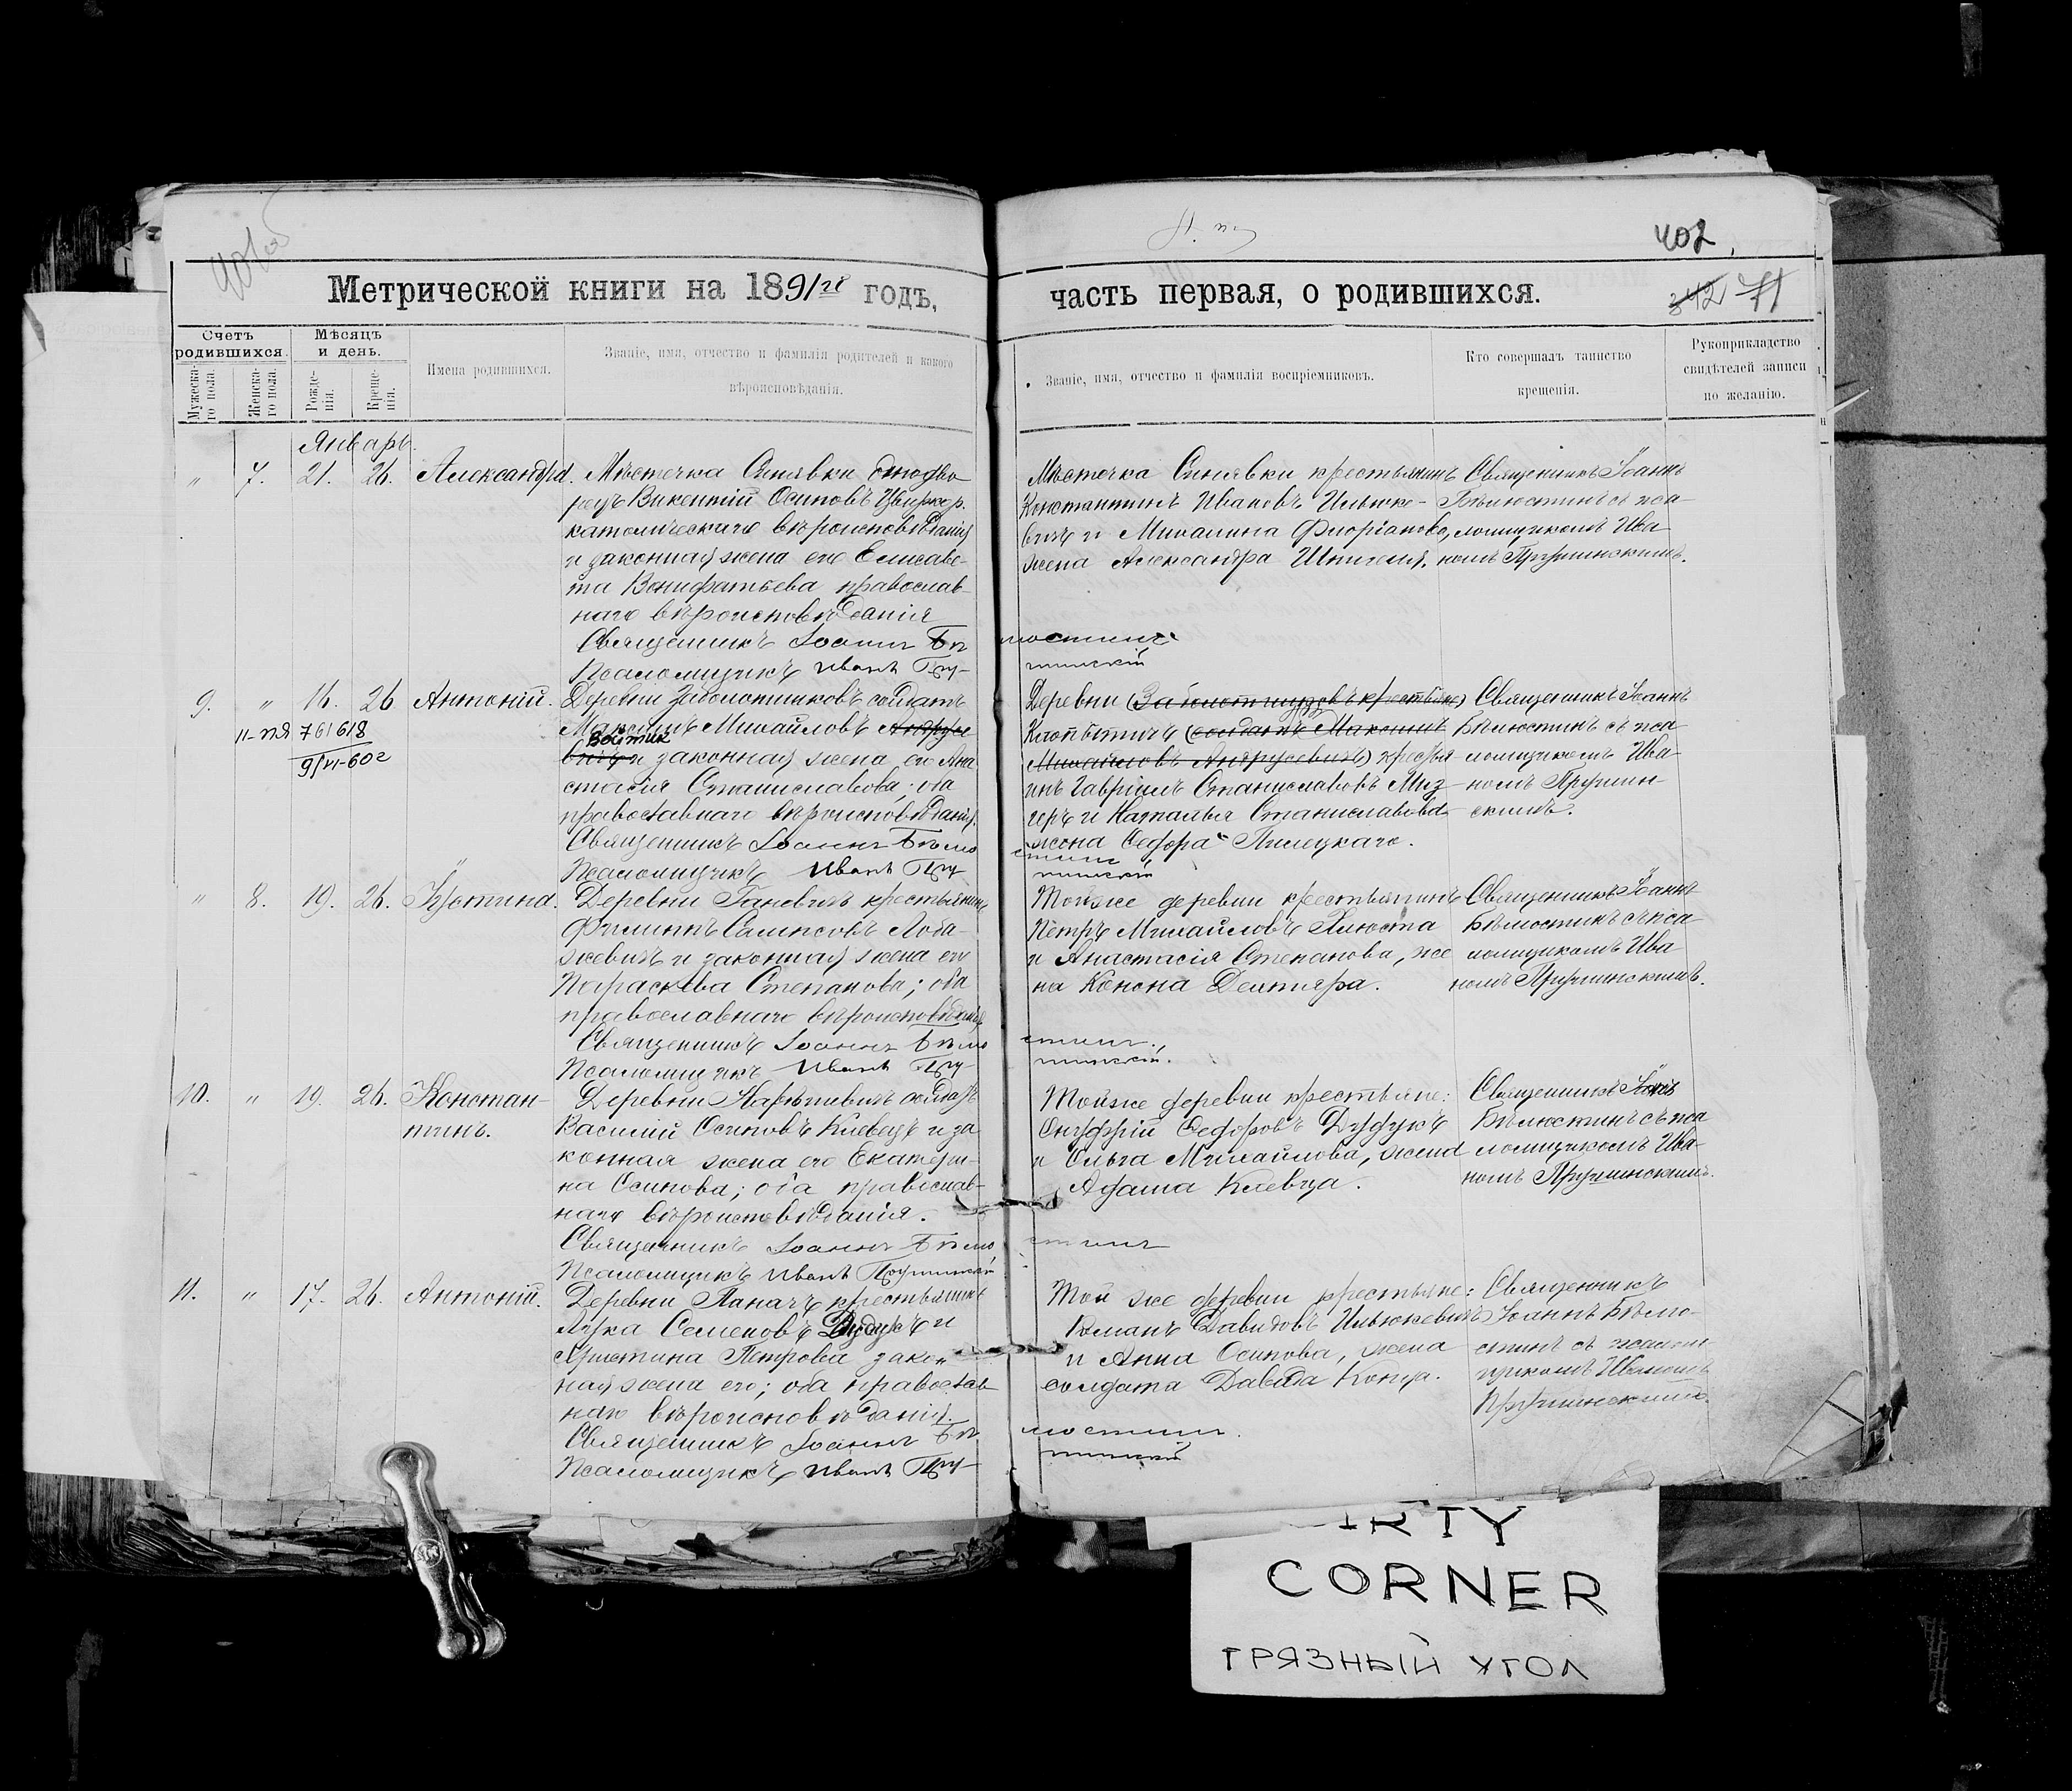 402
Метрической книги на 1891й годъ, часть первая, о родившихся.
342 71
Счетъ родившихся.
Мѣсяцъ и день.
Мужеска-
го пола.
Женска-
го пола.
Рожде-
нія.
Креще-
нія.
Имена родившихся.
Званіе, имя, отчество и фамилія родителей и какого
вѣроисповѣданія.
Званіе, имя, отчество и фамилія воспріемниковъ.
Кто совершалъ таинство
крещенія.
Рукоприкладство
свидѣтелей записи
по желанію.
Январь.
" 7. 21. 26. Александра.
Мѣстечка Синявки однодво-
рецъ Викентій Осиповъ
католическаго вѣроисповѣданія
и законная жена его Елисаве-
та Вонифатьева православ-
наго вѣроисповѣданія
Священникъ Іоаннъ Бѣлюстинъ
Псаломщикъ Иванъ
Мѣстечка Синявки крестьянинъ
Константинъ Ивановъ Илюке-
вичъ и Михалина Флоріанова,
жена Александра
Священникъ Іоаннъ
Бѣлюстинъ съ пса-
ломщикомъ Ива-
номъ
9. " 16. 26 Антоній.
11-ПЯ 761618
9/VI-60г
Деревни Заболотниковъ солдатъ
Максимъ Михайловъ Андрусе
Войтик
вичъ и законная жена его Ана
стасія Станиславова; оба
православнаго вѣроисповѣданія.
Священникъ Іоаннъ Бѣлюстинъ
Псаломщикъ Иванъ
Деревни (Заболотниковъ крестьяне)
(солдатъ Максимъ
Михайловъ Андрусевичъ) крестья
инъ Гавріилъ Станиславовъ Миз
геръ и Наталья Станиславова
жена Ѳедора Пилецкаго.
Священникъ Іоаннъ
Бѣлюстинъ съ пса
ломщикомъ Ива-
номъ
" 8. 19. 26. Христина.
Деревни Ганевичъ крестьянинъ
Филиппъ
жевичъ и законная жена его
Параскева Степанова; оба
православнаго вѣроисповѣданія
Священникъ Іоаннъ Бѣлюстинъ.
Псаломщикъ Иванъ
Тойже деревни крестьянинъ
Петръ Михайловъ Хлюста
и Анастасія Степанова, же
на Конона
Священникъ Іоаннъ
Бѣлюстинъ съ пса
ломщикомъ Ива
номъ
10. " 19. 26. Констан-
тинъ.
Деревни солдатъ
Василій Осиповъ Киевецъ и за
конная жена его Екатери-
на Осипова; оба православ-
наго вѣроисповѣданія.
Священникъ Іоаннъ Бѣлюстинъ
Псаломщикъ Иванъ
Тойже деревни крестьяне:
Онуфрій Ѳедоровъ Дудукъ
и Ольга Михайлова, жена
Адама Киевца.
Священникъ Іоаннъ
Бѣлюстинъ съ пса
ломщикомъ Ива-
номъ
11. " 17. 26. Антоній.
Деревни Паначъ крестьянинъ
Лука Семеновъ Дудукъ и
Христина Петрова закон
ная жена его; оба православ
наго вѣроисповѣданія.
Священникъ Іоаннъ Бѣлюстинъ.
Псаломщикъ Иванъ
Той же деревни крестьяне:
Романъ Давидовъ Илькевичъ
и Анна Осипова, жена
солдата Давида Конца.
Священникъ
Іоаннъ Бѣлю-
стинъ съ псалом
щикомъ Иваномъ
CORNER
ГРЯЗНЫЙ УГОЛ